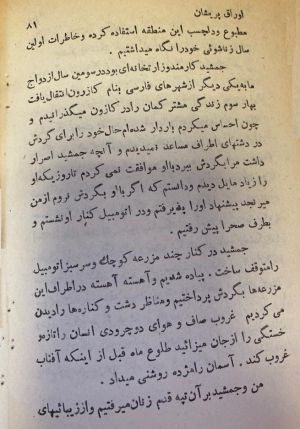 اوراق پریشان
۸۹
مطبوع و دلچسب این منطقه استفاده کرده و خاطرات اولین
سال زناشوئی خود را نگاه میداشتیم .
جمشید کارمند وزارتخانه‌ای بود در سومین سال ازدواج
ما به یکی دیگر از شهرهای فارسی بنام کازرون انتقال یافت
بهار سوم زندگی مشترکمان را در کازرون میگذرانیدیم و
چون احساس میکردم باردار شده‌ام حال خود را برای گردش
در دشتهای اطراف مساعد نمیدیدم و آنچه جمشید اصرار
داشت مرا بگردش ببرد با او موافقت نمی کردم تا روزیکه او
را زیاد مایل دیدم و دانستم که اگر با او بگردش نروم از من
میرنجد پیشنهاد او را پذیرفتم و در اتومبیل کنار او نشستم و
بطرف صحرا پیش رفتیم .
جمشید در کنار چند مزرعه کوچک و سرسبز اتومبیل
را متوقف ساخت . پیاده شدیم و آهسته آهسته در اطراف این
مزرعه‌ها بگردش پرداختیم و مناظر دشت و کناره‌ها را دیدن
می کردیم غروب صاف و هوای دو چرودی انسان را تازه و
خستگی را از جان میزائید طلوع ماه قبل از اینکه آفتاب
غروب کند . آسمان را مژده روشنی میداد .
من و جمشید بر آن تپه قدم زنان میرفتیم و از زیبائیهای